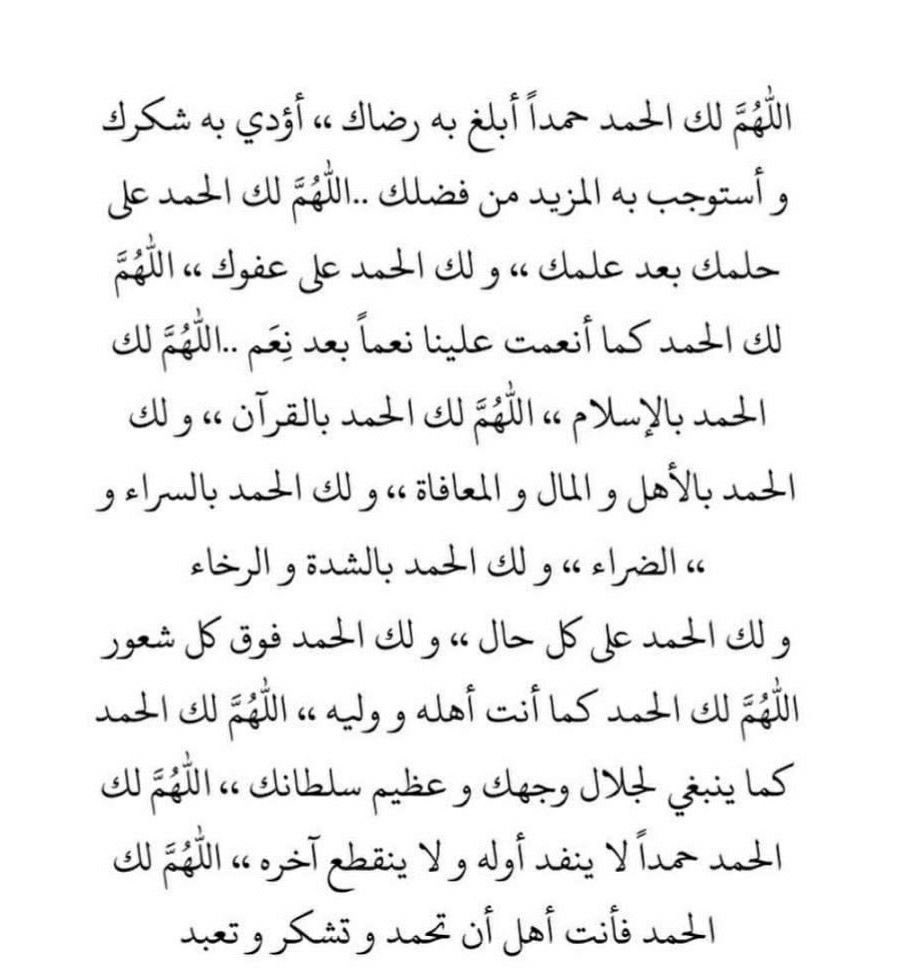 اللَّهُمَّ لك الحمد حمداً أبلغ به رضاك ،، أؤدي به شكرك
و أستوجب به المزيد من فضلك ..اللَّهُمَّ لك الحمد على
حلمك بعد علمك ،، و لك الحمد على عفوك ،، اللَّهُمَّ
لك الحمد كما أنعمت علينا نعماً بعد نِعَم ..اللَّهُمَّ لك
الحمد بالإسلام ،، اللَّهُمَّ لك الحمد بالقرآن ،، و لك
الحمد بالأهل و المال و المعافاة ،، و لك الحمد بالسراء و
،، الضراء ،، و لك الحمد بالشدة و الرخاء
و لك الحمد على كل حال ،، و لك الحمد فوق كل شعور
اللَّهُمَّ لك الحمد كما أنت أهله و وليه ،، اللَّهُمَّ لك الحمد
كما ينبغي لجلال وجهك و عظيم سلطانك ،، اللَّهُمَّ لك
الحمد حمداً لا ينفد أوله و لا ينقطع آخره ،، اللَّهُمَّ لك
الحمد فأنت أهل أن تحمد و تشكر و تعبد